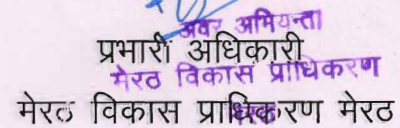 अवर अभियन्ता
प्रभारी अधिकारी
मेरठ विकास प्राधिकरण
मेरठ विकास प्राधिकरण मेरठ